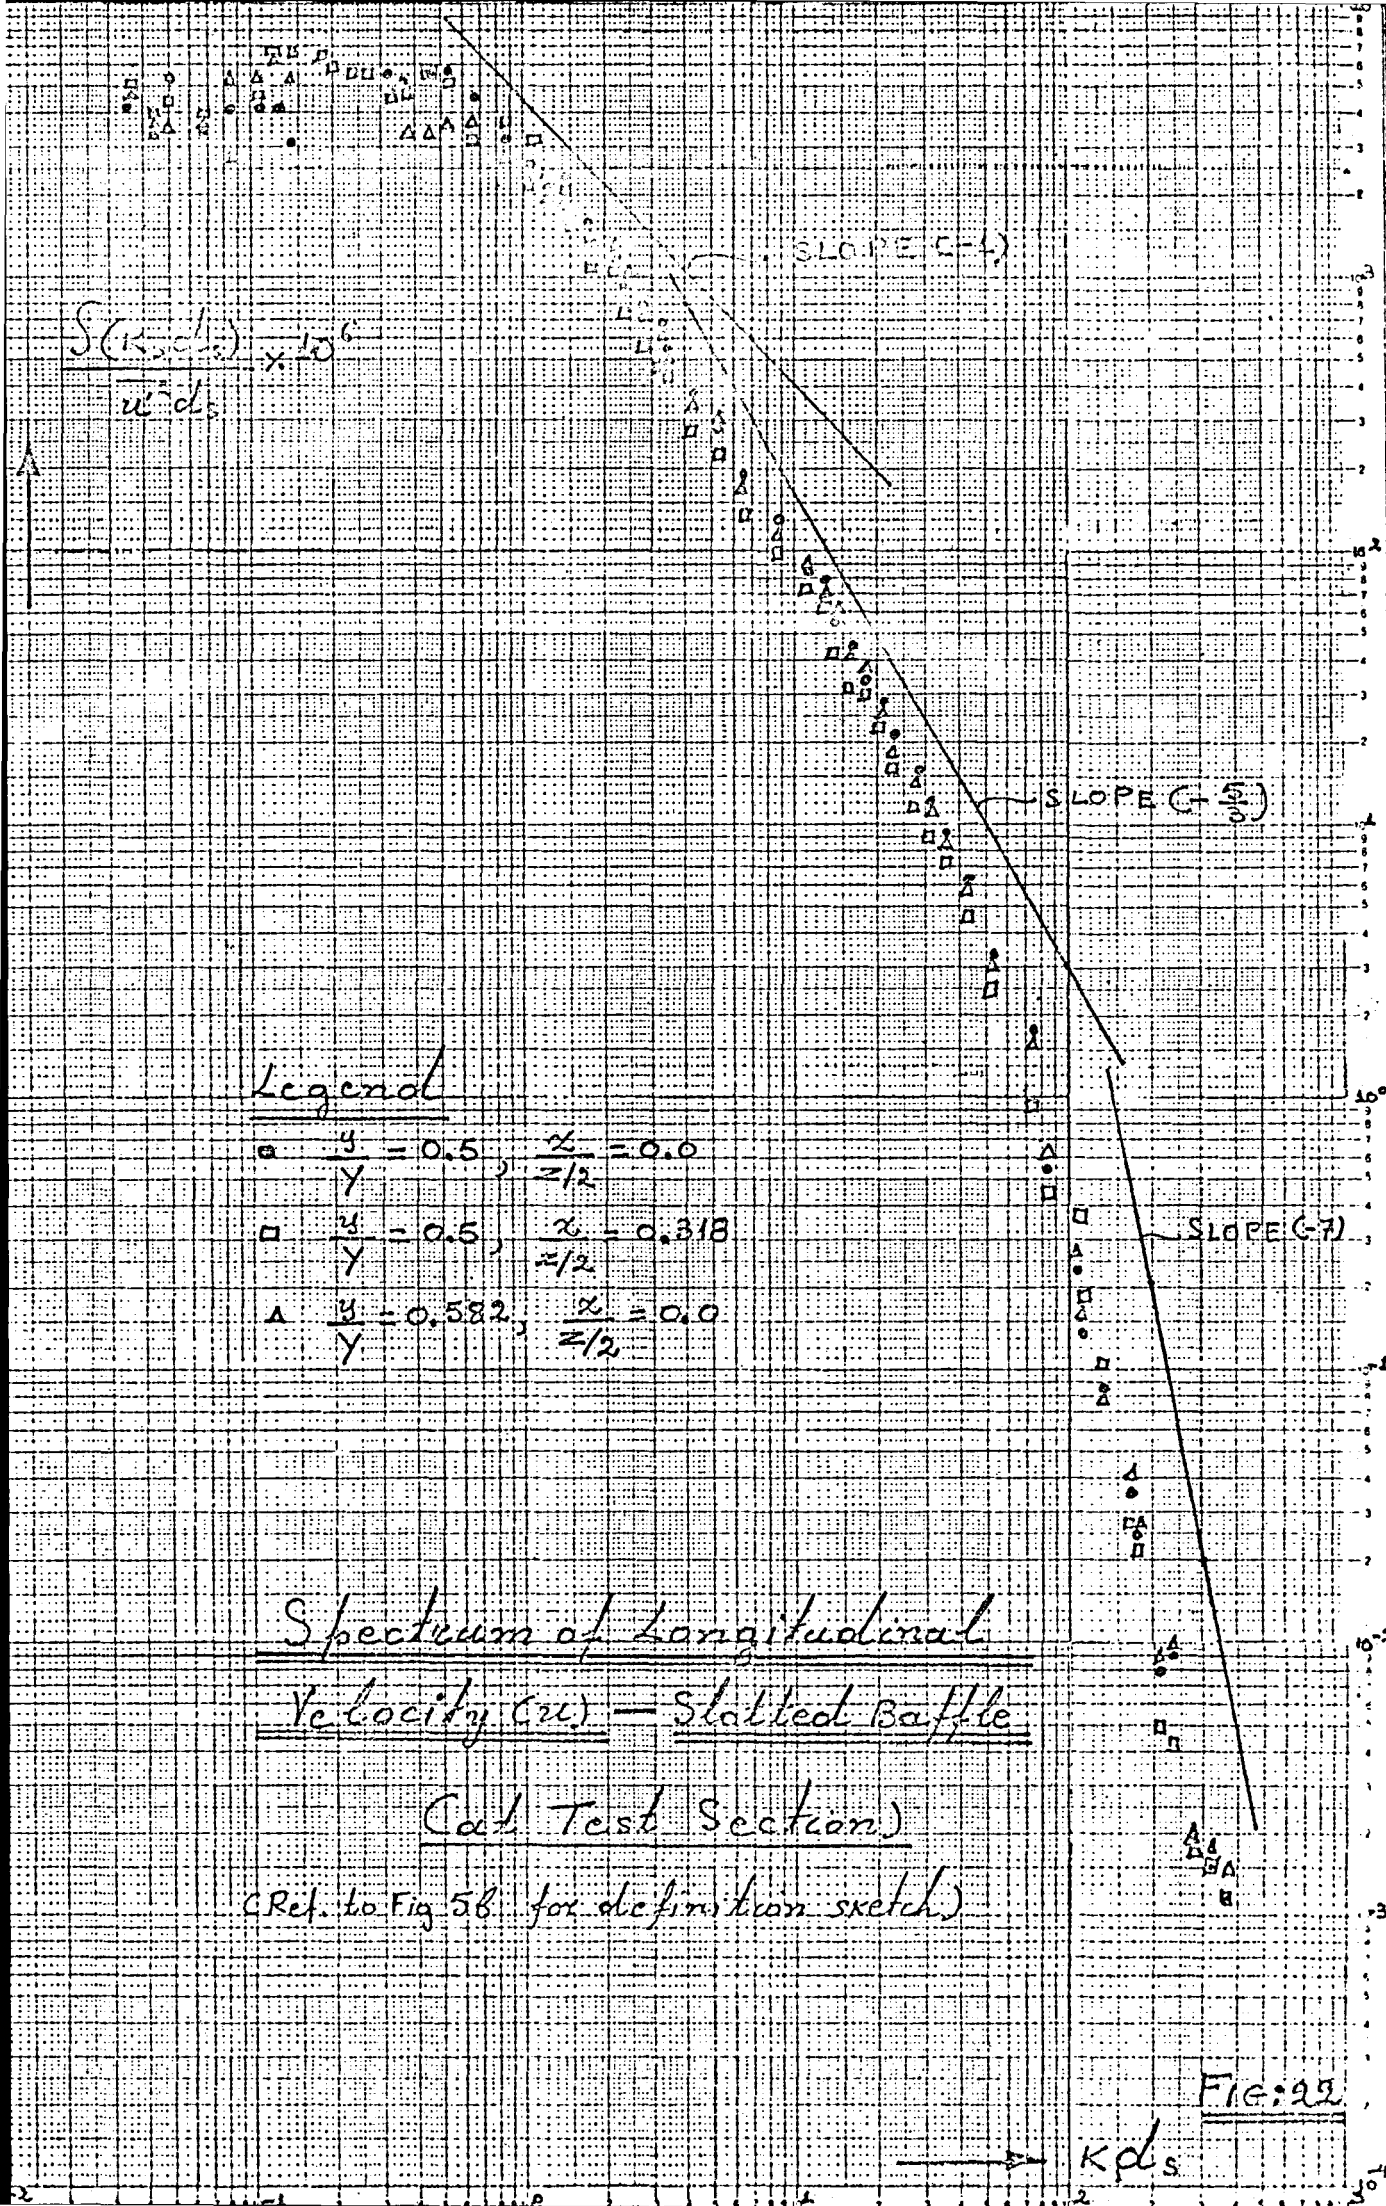 SLOPE (-1)
S(K, ds) × 10⁶
u'² ds
SLOPE (-5/3)
Legend
y/Y = 0.5, z/Z/2 = 0.0
y/Y = 0.5, z/Z/2 = 0.318
SLOPE (-7)
y/Y = 0.582, z/Z/2 = 0.0
Spectrum of Longitudinal
Velocity (u) — Slotted Baffle
(at Test Section)
(Ref. to Fig 5b for definition sketch)
FIG: 22
K ds